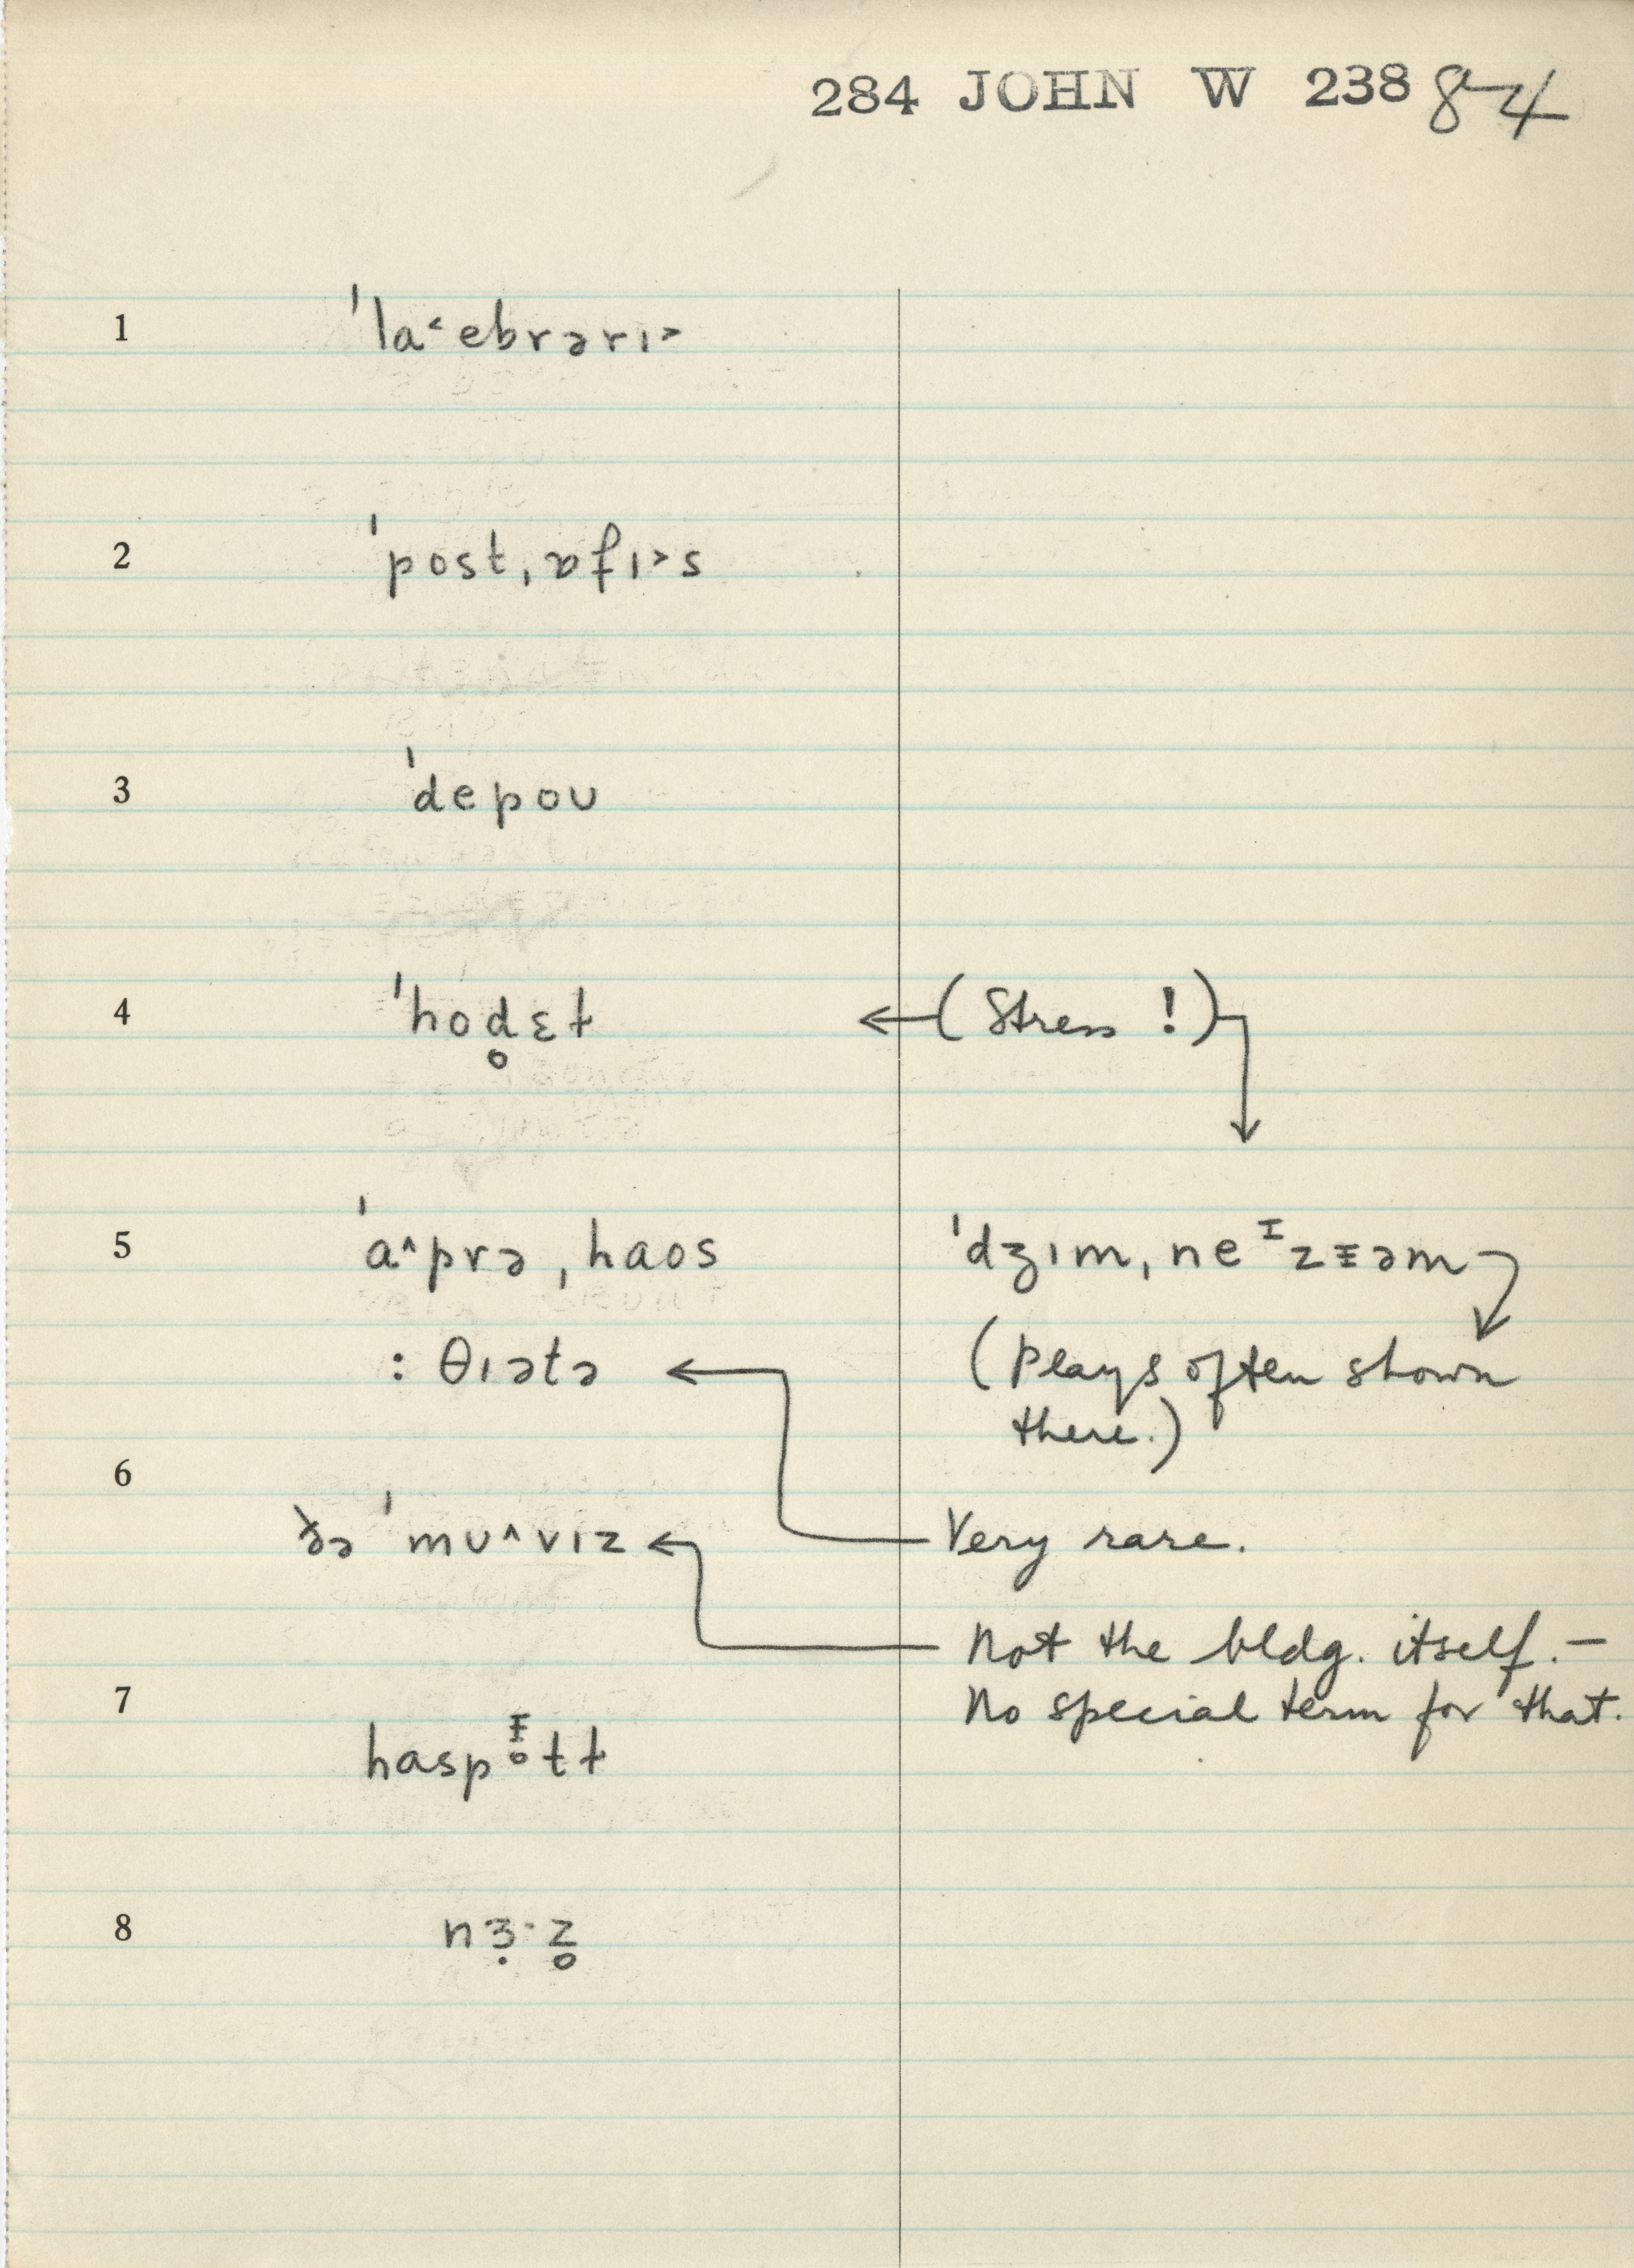 284 JOHN W 238 84
1 ˈla˂ebrərɪ˃
2 ˈpost,ɒfɪ˃s
3 ˈdepoʊ
4 ˈhod̥ɛɫ (Stress !)
5 ˈa˄prə,haos ˈdʒɪm,neᶦzɪəm
: θɪətə (plays often shown
there.)
6
ðə ˈmʊ˄vɪz Very rare.
Not the bldg. itself. —
7 No special term for that.
haspɪ̵̥tɫ
8 nɜ̣·z̥